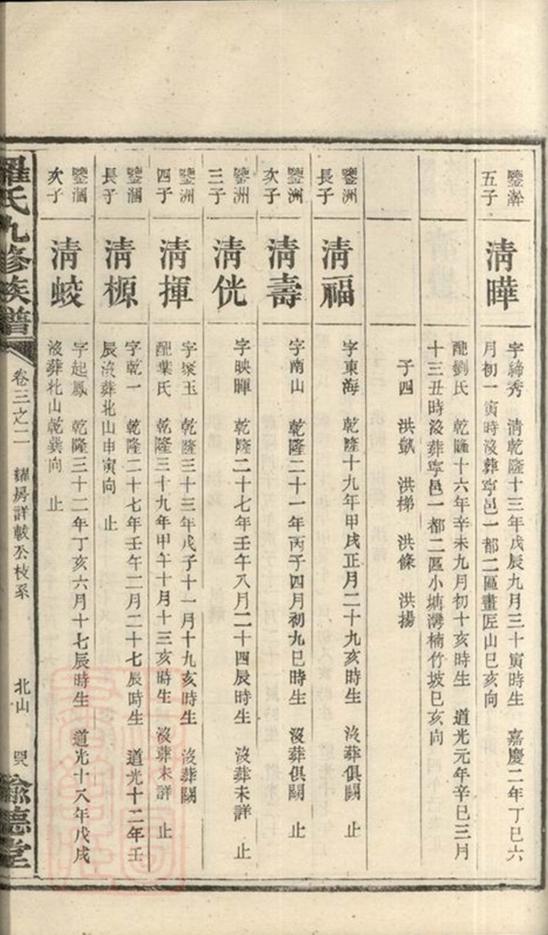 鑒瀚五子
清曄
字締秀 清乾隆十三年戊辰九月三十寅時生 嘉慶二年丁巳六
月初一寅時沒葬寧邑一都二區畫匠山巳亥向
配劉氏 乾隆十六年辛未九月初十亥時生 道光元年辛巳三月
十三丑時沒葬寧邑一都二區小塘灣楠竹坡巳亥向
子四 洪 洪梯 洪條 洪揚
鑒洲長子
清福
字東海 乾隆十九年甲戌正月二十九亥時生 沒葬俱闕 止
鑒洲次子
清壽
字南山 乾隆二十一年丙子四月初九巳時生 沒葬俱闕 止
鑒洲三子
清侊
字映暉 乾隆二十七年壬午八月二十四辰時生 沒葬未詳 止
鑒洲四子
清揮
字聚玉 乾隆三十三年戊子十一月十九亥時生 沒葬闕
配葉氏 乾隆三十九年甲午十月十三亥時生 沒葬未詳 止
鑒涸長子
清榞
字乾一 乾隆二十七年壬午二月二十七辰時生 道光十二年壬
辰沒葬北山申寅向 止
鑒涸次子
清蛟
字起鳳 乾隆三十二年丁亥六月十七辰時生 道光十八年戊戌
沒葬北山乾巽向 止
羅氏九修族譜 卷三之二 耀房詳載公枝系 北山 豫德堂